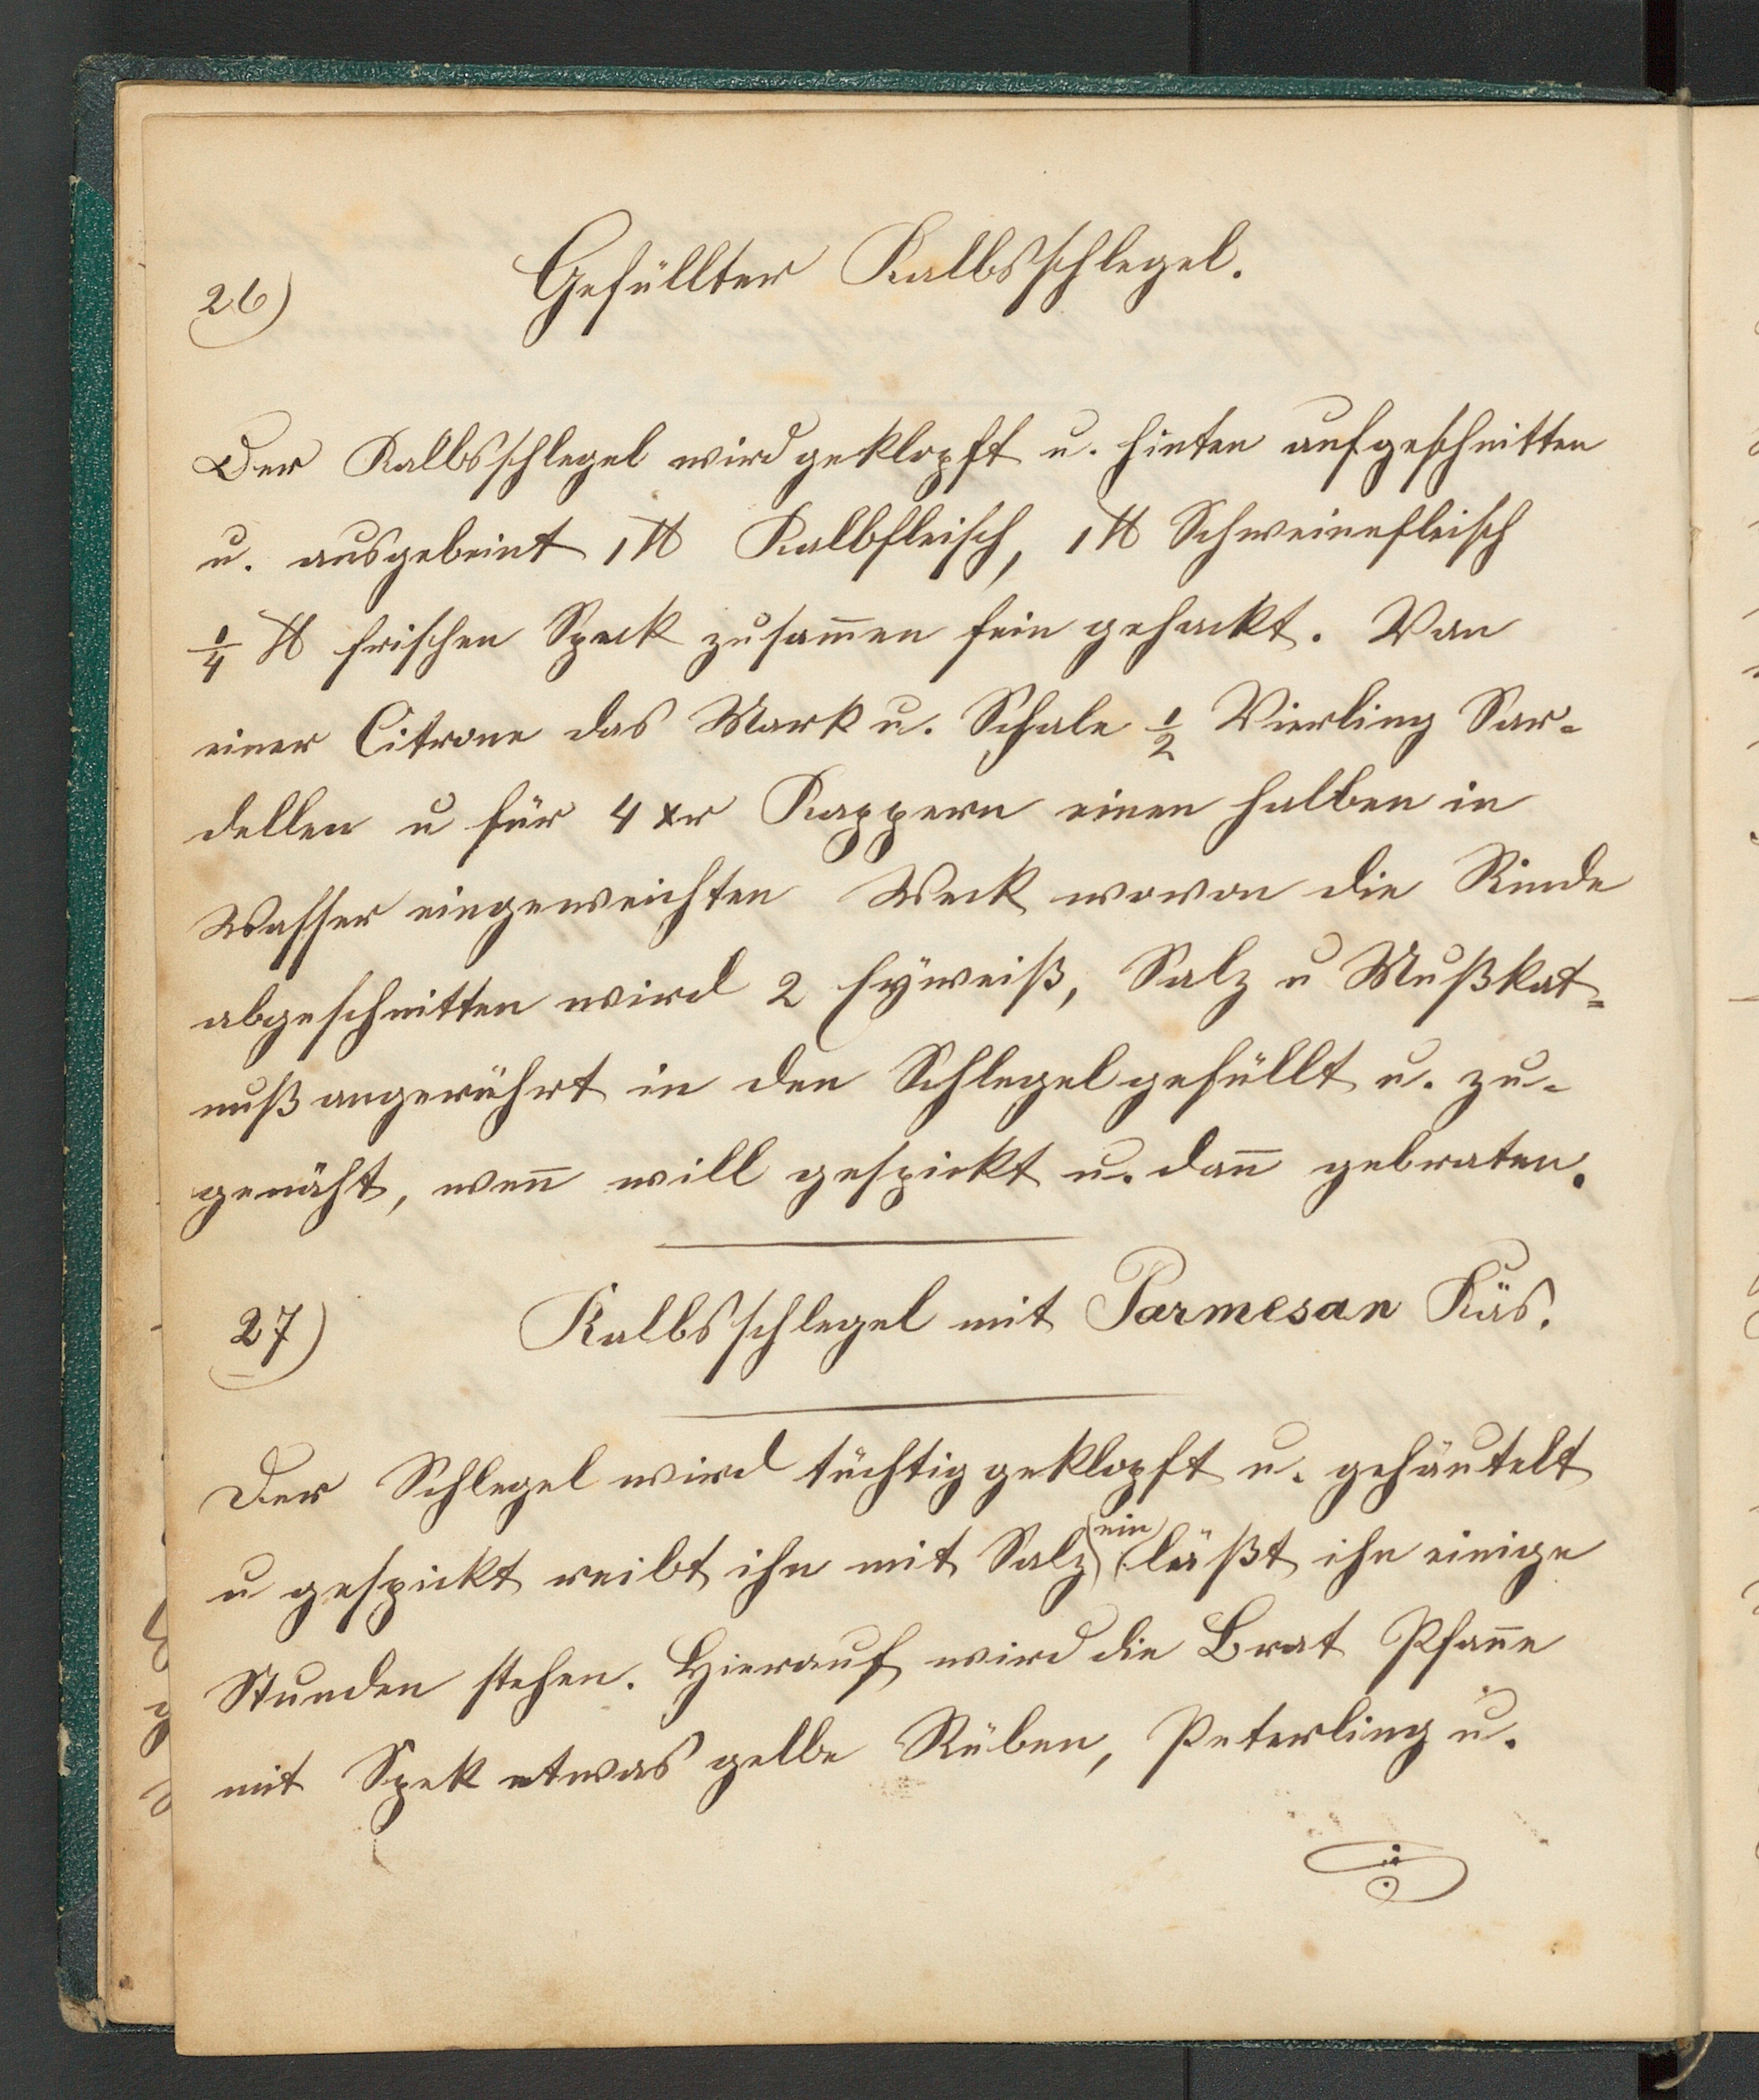 26) Gefüllter Kalbsschlegel.
Der Kalbsschlegel wird geklopft u. hinten aufgeschnitten
u. ausgebeint 1 ℔ Kalbfleisch, 1 ℔ Schweinefleisch
1/4 ℔ frischen Speck zusam̄en fein gehackt. Von
einer Citrone das Mark u. Schale 1/2 Vierling Sar-
dellen u für 4 xr Kappern einen halben in
Wasser eingeweichten Weck wovon die Rinde
abgeschnitten wird 2 Eÿweiß, Salz u Mußkat=
nuß angerührt in den Schlegel gefüllt u. zu-
genäht, wen̄ will gespickt u. dan̄ gebraten.
27) Kalbsschlegel mit Parmesan Käs.
Der Schlegel wird tüchtig geklopft u. gehäutelt
u gespickt reibt ihn mit Salz ein läßt ihn einige
Stunden stehen. Hierauf wird die Brat Pfan̄e
mit Spek etwas gelbe Rüben, Peterling u.